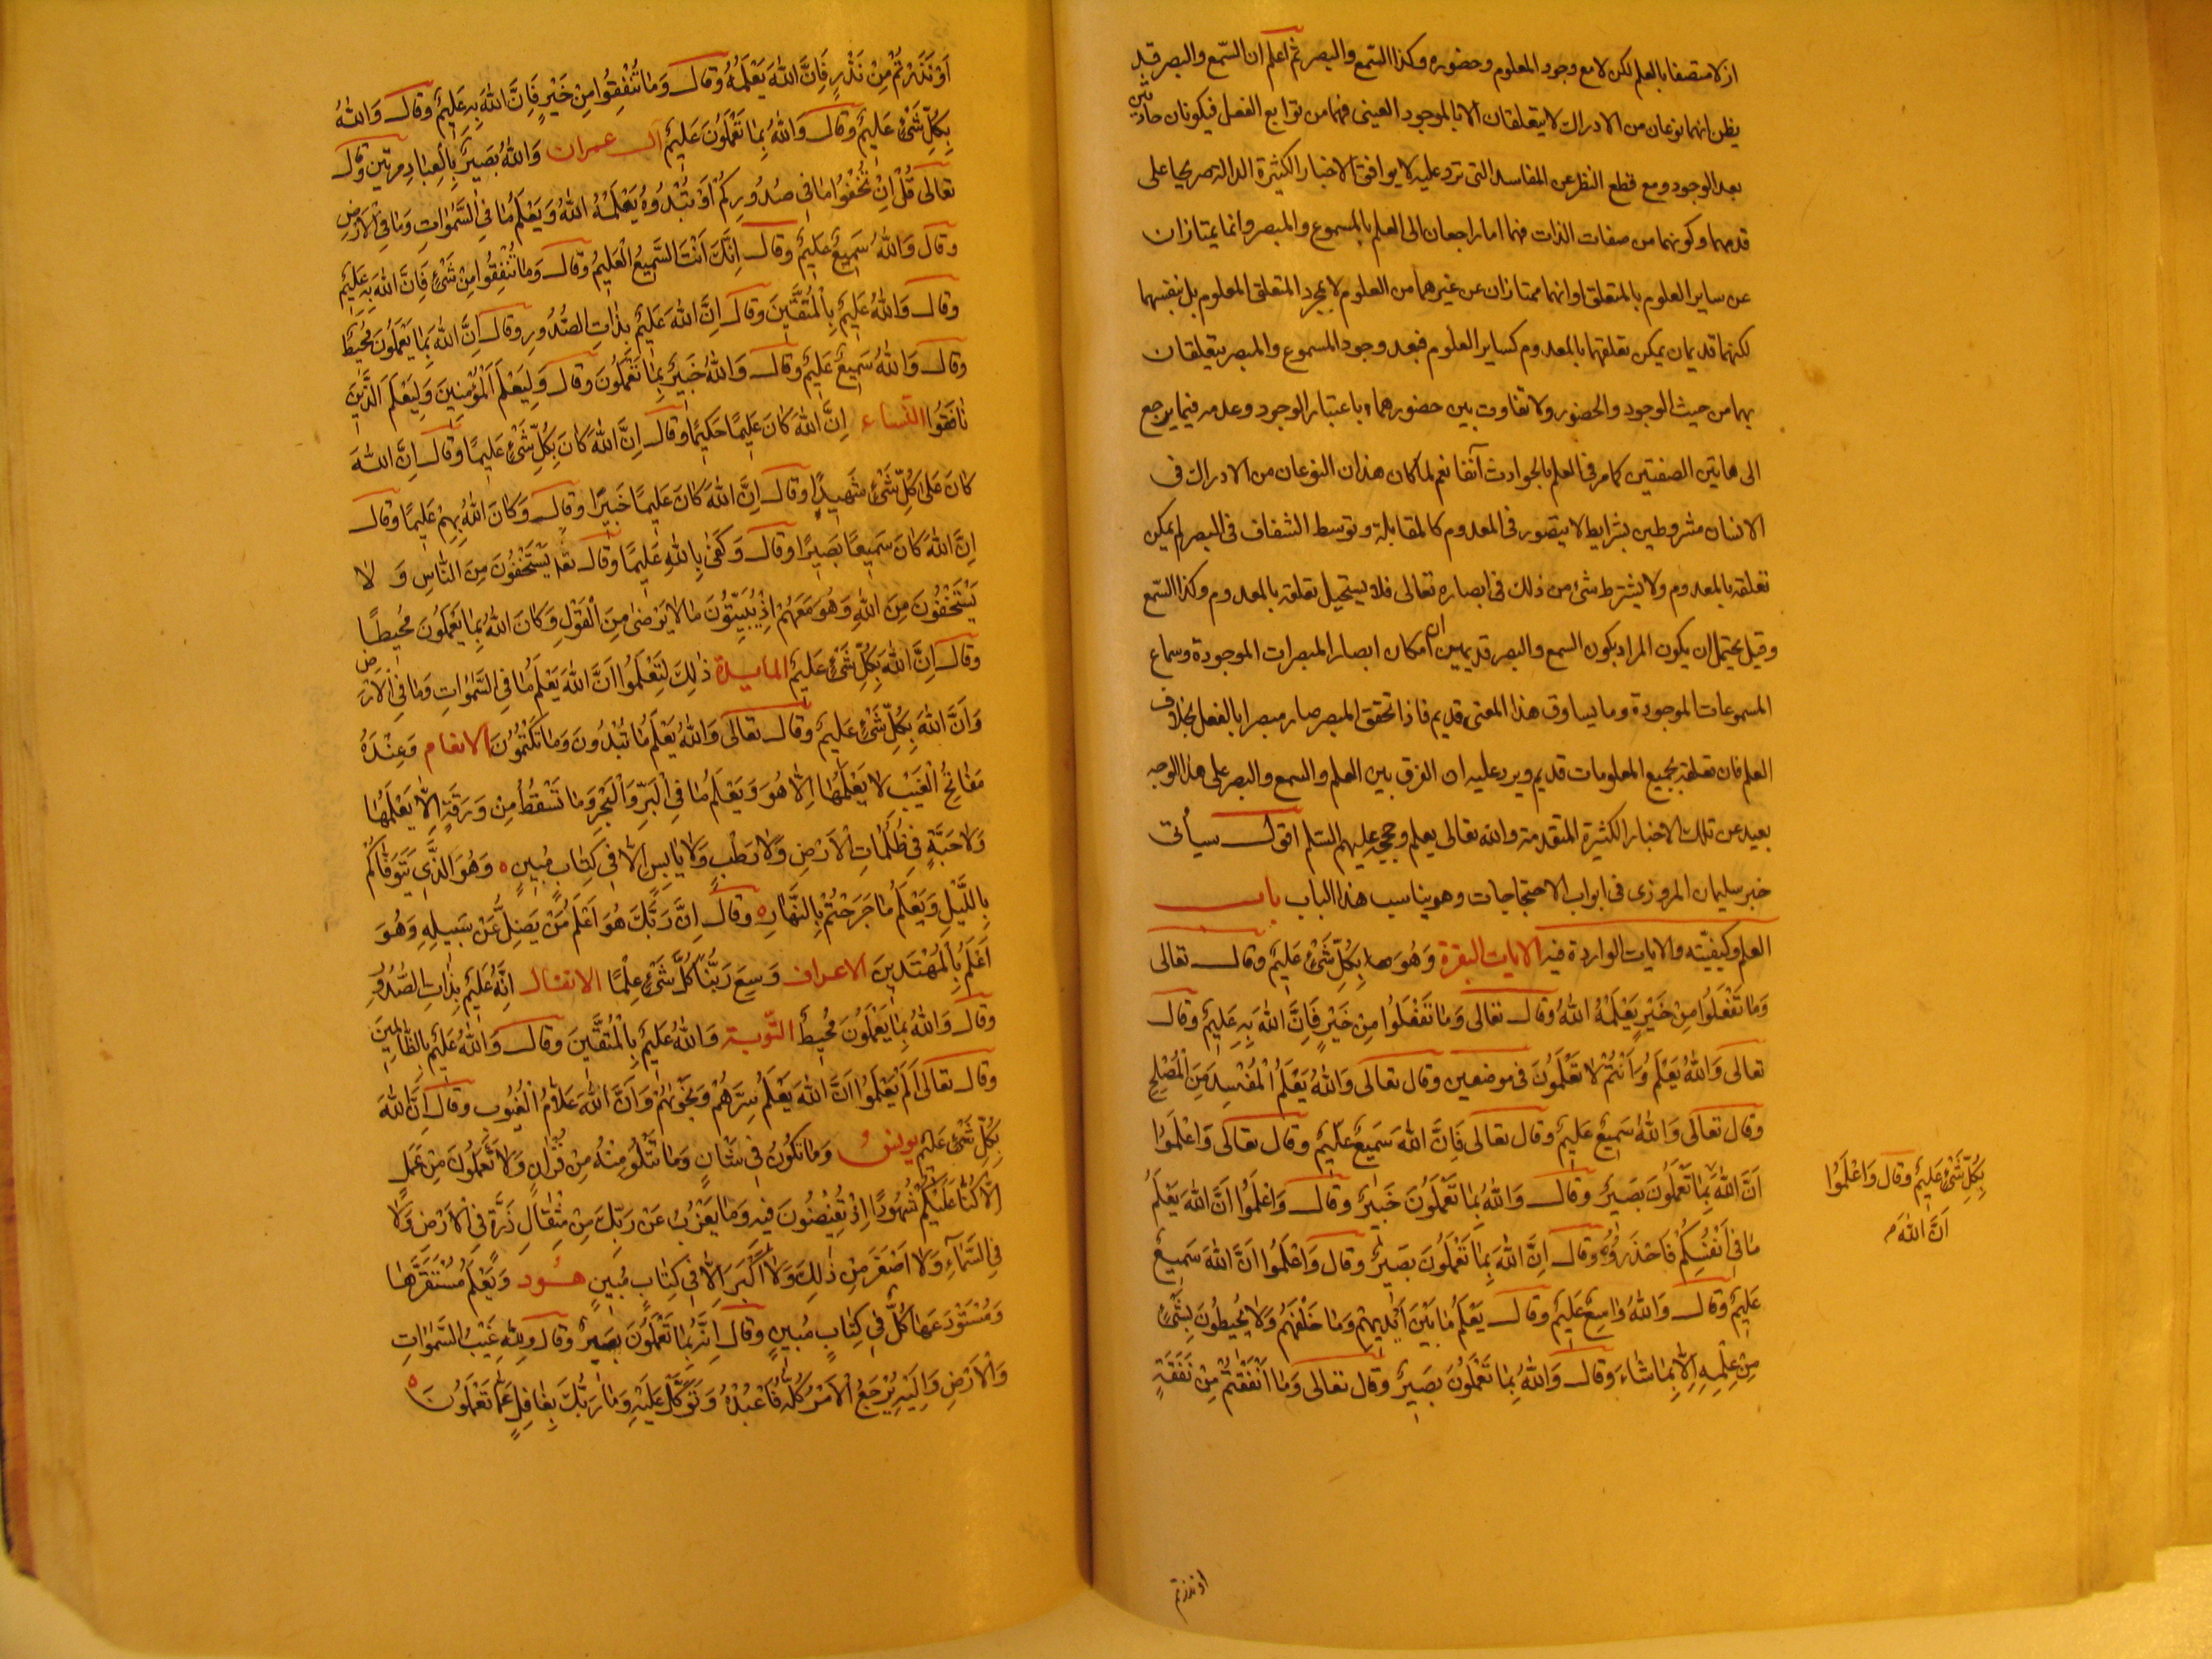 ازلا متصفا بالعلم لكن لا مع وجود المعلوم وحضوره وكذا السمع والبصر ثم اعلم ان السمع والبصر قد
يظن انهما نوعان من الادراك لا يتعلقان الا بالموجود العينى فهما من توابع الفعل فيكونان حادثين
بعد الوجود ومع قطع النظر عن المفاسد التى ترد عليه لا يوافق الاخبار الكثيرة الدالة صريحا على
قدمهما وكونهما من صفات الذات فهما اما راجعان الى العلم بالمسموع والمبصر وانما يمتازان
عن ساير العلوم بالمتعلق او انهما ممتازان عن غيرهما من العلوم لا بمجرد المتعلق المعلوم بل بنفسهما
لكنهما قديمان يمكن تعلقهما بالمعدوم كساير العلوم فبعد وجود المسموع والمبصر يتعلقان
بهما من حيث الوجود والحضور ولا تفاوت بين حضورهما باعتبار الوجود وعدمه فيما يرجع
الى هاتين الصفتين كما مر فى العلم بالحوادث آنفا نعم لما كان هذان النوعان من الادراك فى
الانسان مشروطين بشرايط لا يتصور فى المعدوم كالمقابلة وتوسط الشفاف فى البصر لم يمكن
تعلقه بالمعدوم ولا يشترط شئ من ذلك فى ابصاره تعالى فلا يستحيل تعلقه بالمعدوم وكذا السمع
وقيل يحتمل ان يكون المراد بكون السمع والبصر قديمين ان امكان ابصار المبصرات الموجودة وسماع
المسموعات الموجودة وما يساوق هذا المعنى قديم فاذا تحقق المبصر صار مبصرا بالفعل بخلاف
العلم فان تعلقه بجميع المعلومات قديم ويرد عليه ان الفرق بين العلم والسمع والبصر على هذا الوجه
بعيد عن تلك الاخبار الكثيرة المتقدمة والله تعالى يعلم وحججه عليهم السلم اقول سيأتى
خبر سليمان المروزى فى ابواب الاحتجاجات وهو يناسب هذا الباب باب
العلم وكيفيته والايات الواردة فيه الايات البقرة وَهُوَ بِكُلِّ شَئٍ عَلِيمٌ وقال تعالى
وَمٰا تَفْعَلُوا مِنْ خَيْرٍ يَعْلَمْهُ اللهُ وقال تعالى وَمٰا تَفْعَلُوا مِنْ خَيْرٍ فَاِنَّ اللهَ بِهِ عَلِيمٌ وقال
تعالى وَاللهُ يَعْلَمُ وَاَنْتُمْ لاٰ تَعْلَمُونَ فى موضعين وقال تعالى وَاللهُ يَعْلَمُ الْمُفْسِدَ مِنَ الْمُصْلِحِ
وقال تعالى وَاللهُ سَمِيعٌ عَلِيمٌ وقال تعالى فَاِنَّ اللهَ سَمِيعٌ عَلِيمٌ وقال تعالى وَاعْلَمُوا
اَنَّ اللهَ بِمٰا تَعْمَلُونَ بَصِيرٌ وقال وَاللهُ بِمٰا تَعْمَلُونَ خَبِيرٌ وقال وَاعْلَمُوا اَنَّ اللهَ يَعْلَمُ
مٰا فِى اَنْفُسِكُمْ فَاحْذَرُوهُ وقال اِنَّ اللهَ بِمٰا تَعْمَلُونَ بَصِيرٌ وقال وَاعْلَمُوا اَنَّ اللهَ سَمِيعٌ
عَلِيمٌ وقال وَاللهُ وٰاسِعٌ عَلِيمٌ وقال يَعْلَمُ مٰا بَيْنَ اَيْدِيهِمْ وَمٰا خَلْفَهُمْ وَلاٰ يُحِيطُونَ بِشَئٍ
مِنْ عِلْمِهِ اِلاّٰ بِمٰا شٰاءَ وقال وَاللهُ بِمٰا تَعْمَلُونَ بَصِيرٌ وقال تعالى وَمٰا اَنْفَقْتُمْ مِنْ نَفَقَةٍ
بِكُلِّ شَئٍ عَلِيمٌ وقال وَاعْلَمُوا
اَنَّ اللهَ م
او نذرتم
اَوْ نَذَرْتُمْ مِنْ نَذْرٍ فَاِنَّ اللهَ يَعْلَمُهُ وقال وَمٰا تُنْفِقُوا مِنْ خَيْرٍ فَاِنَّ اللهَ بِهِ عَلِيمٌ وقال وَاللهُ
بِكُلِّ شَئٍ عَلِيمٌ وقال وَاللهُ بِمٰا تَعْمَلُونَ عَلِيمٌ آل عمران وَاللهُ بَصِيرٌ بِالْعِبٰادِ مرتين وقال
تعالى قُلْ اِنْ تُخْفُوا مٰا فِى صُدُورِكُمْ اَوْ تُبْدُوهُ يَعْلَمْهُ اللهُ وَيَعْلَمُ مٰا فِى السَّمٰوٰاتِ وَمٰا فِى الْاَرْضِ
وقال وَاللهُ سَمِيعٌ عَلِيمٌ وقال اِنَّكَ اَنْتَ السَّمِيعُ الْعَلِيمُ وقال وَمٰا تُنْفِقُوا مِنْ شَئٍ فَاِنَّ اللهَ بِهِ عَلِيمٌ
وقال وَاللهُ عَلِيمٌ بِالْمُتَّقِينَ وقال اِنَّ اللهَ عَلِيمٌ بِذٰاتِ الصُّدُورِ وقال اِنَّ اللهَ بِمٰا يَعْمَلُونَ مُحِيطٌ
وقال وَاللهُ سَمِيعٌ عَلِيمٌ وقال وَاللهُ خَبِيرٌ بِمٰا تَعْمَلُونَ وقال وَلِيَعْلَمَ الْمُؤْمِنِينَ وَلِيَعْلَمَ الَّذِينَ
نٰافَقُوا النساء اِنَّ اللهَ كٰانَ عَلِيمًا حَكِيمًا وقال اِنَّ اللهَ كٰانَ بِكُلِّ شَئٍ عَلِيمًا وقال اِنَّ اللهَ
كٰانَ عَلىٰ كُلِّ شَئٍ شَهِيدًا وقال اِنَّ اللهَ كٰانَ عَلِيمًا خَبِيرًا وقال وَكٰانَ اللهُ بِهِمْ عَلِيمًا وقال
اِنَّ اللهَ كٰانَ سَمِيعًا بَصِيرًا وقال وَكَفىٰ بِاللهِ عَلِيمًا وقال تع يَسْتَخْفُونَ مِنَ النّٰاسِ وَ لاٰ
يَسْتَخْفُونَ مِنَ اللهِ وَهُوَ مَعَهُمْ اِذْ يُبَيِّتُونَ مٰا لاٰ يَرْضىٰ مِنَ الْقَوْلِ وَكٰانَ اللهُ بِمٰا يَعْمَلُونَ مُحِيطًا
وقال اِنَّ اللهَ بِكُلِّ شَئٍ عَلِيمٌ المايدة ذٰلِكَ لِتَعْلَمُوا اَنَّ اللهَ يَعْلَمُ مٰا فِى السَّمٰوٰاتِ وَمٰا فِى الْاَرْضِ
وَاَنَّ اللهَ بِكُلِّ شَئٍ عَلِيمٌ وقال تعالى وَاللهُ يَعْلَمُ مٰا تُبْدُونَ وَمٰا تَكْتُمُونَ الانعام وَعِنْدَهُ
مَفٰاتِحُ الْغَيْبِ لاٰ يَعْلَمُهٰا اِلاّٰ هُوَ وَيَعْلَمُ مٰا فِى الْبَرِّ وَالْبَحْرِ وَمٰا تَسْقُطُ مِنْ وَرَقَةٍ اِلاّٰ يَعْلَمُهٰا
وَلاٰ حَبَّةٍ فِى ظُلُمٰاتِ الْاَرْضِ وَلاٰ رَطْبٍ وَلاٰ يٰابِسٍ اِلاّٰ فِى كِتٰابٍ مُبِينٍ ه وَهُوَ الَّذِى يَتَوَفّٰاكُمْ
بِاللَّيْلِ وَيَعْلَمُ مٰا جَرَحْتُمْ بِالنَّهٰارِ ه وقال اِنَّ رَبَّكَ هُوَ اَعْلَمُ مَنْ يَضِلُّ عَنْ سَبِيلِهِ وَهُوَ
اَعْلَمُ بِالْمُهْتَدِينَ الاعراف وَسِعَ رَبُّنٰا كُلَّ شَئٍ عِلْمًا الانفال اِنَّهُ عَلِيمٌ بِذٰاتِ الصُّدُورِ
وقال وَاللهُ بِمٰا يَعْمَلُونَ مُحِيطٌ التوبة وَاللهُ عَلِيمٌ بِالْمُتَّقِينَ وقال وَاللهُ عَلِيمٌ بِالظّٰالِمِينَ
وقال تعالى اَلَمْ يَعْلَمُوا اَنَّ اللهَ يَعْلَمُ سِرَّهُمْ وَنَجْوٰيهُمْ وَاَنَّ اللهَ عَلاّٰمُ الْغُيُوبِ وقال اِنَّ اللهَ
بِكُلِّ شَئٍ عَلِيمٌ يونس وَمٰا تَكُونُ فِى شَأْنٍ وَمٰا تَتْلُو مِنْهُ مِنْ قُرْاٰنٍ وَلاٰ تَعْمَلُونَ مِنْ عَمَلٍ
اِلاّٰ كُنّٰا عَلَيْكُمْ شُهُودًا اِذْ تُفِيضُونَ فِيهِ وَمٰا يَعْزُبُ عَنْ رَبِّكَ مِنْ مِثْقٰالِ ذَرَّةٍ فِى الْاَرْضِ وَلاٰ
فِى السَّمٰآءِ وَلاٰ اَصْغَرَ مِنْ ذٰلِكَ وَلاٰ اَكْبَرَ اِلاّٰ فِى كِتٰابٍ مُبِينٍ هود وَيَعْلَمُ مُسْتَقَرَّهٰا
وَمُسْتَوْدَعَهٰا كُلٌّ فِى كِتٰابٍ مُبِينٍ وقال اِنَّهُ بِمٰا تَعْمَلُونَ بَصِيرٌ وقال وَلِلّٰهِ غَيْبُ السَّمٰوٰاتِ
وَالْاَرْضِ وَاِلَيْهِ يُرْجَعُ الْاَمْرُ كُلُّهُ فَاعْبُدْهُ وَتَوَكَّلْ عَلَيْهِ وَمٰا رَبُّكَ بِغٰافِلٍ عَمّٰا تَعْمَلُونَ ه